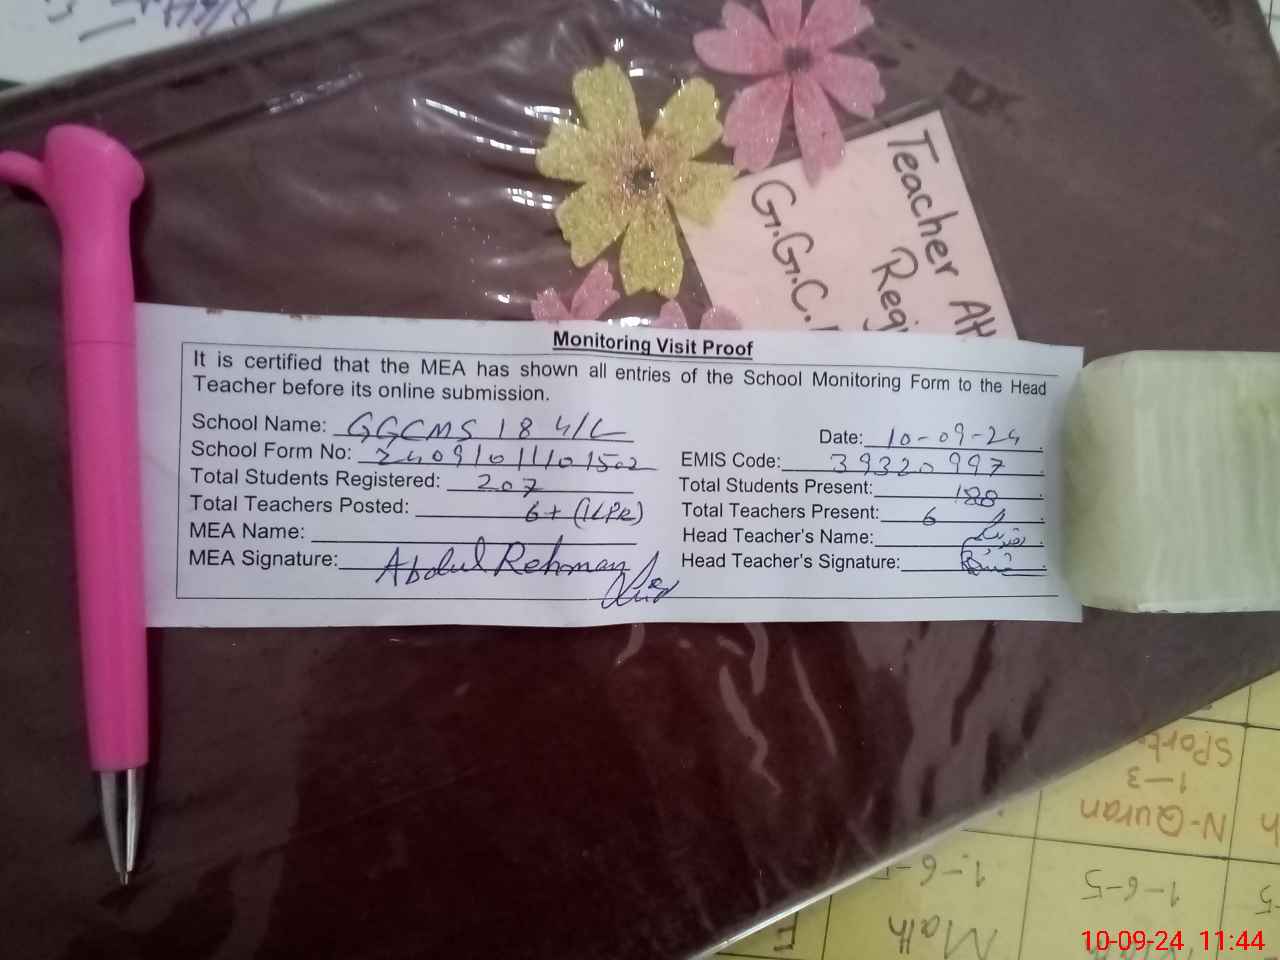 Teacher Att
Regi
G.G.C.
Monitoring Visit Proof
It is certified that the MEA has shown all entries of the School Monitoring Form to the Head
Teacher before its online submission.
School Name: GGCMS 18 4/L
Date: 10-09-24
School Form No:
EMIS Code: 39320997
Total Students Registered: 207
Total Students Present: 188
Total Teachers Posted: 6+
Total Teachers Present: 6
MEA Name:
Head Teacher's Name:
MEA Signature: Abdul Rehman
Head Teacher's Signature:
Sports
1-3
N-Quran
1-6-5
1-6-5
Math
10-09-24 11:44